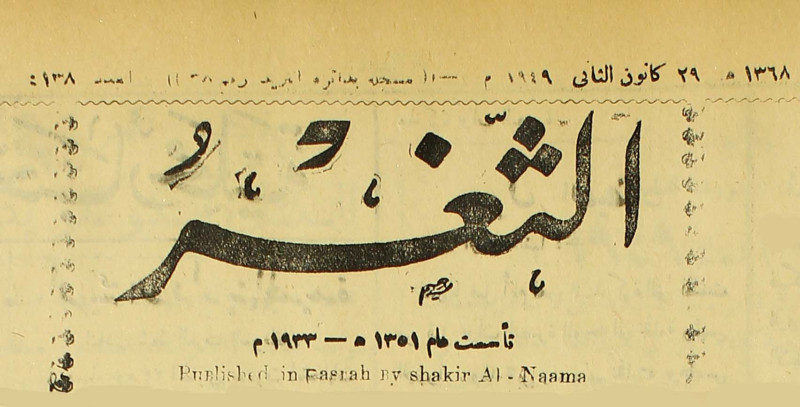 ١٣٦٨ ه ٢٩ كانون الثاني ١٩٤٩ م —(( مسجله بدائرة البريد رقم ٣٨ )) العدد ١٣٨:
الثَّغْر
رحيم
تأسست عام ١٣٥١ ه — ١٩٣٣ م
Published in Basrah By shakir Al-Naama